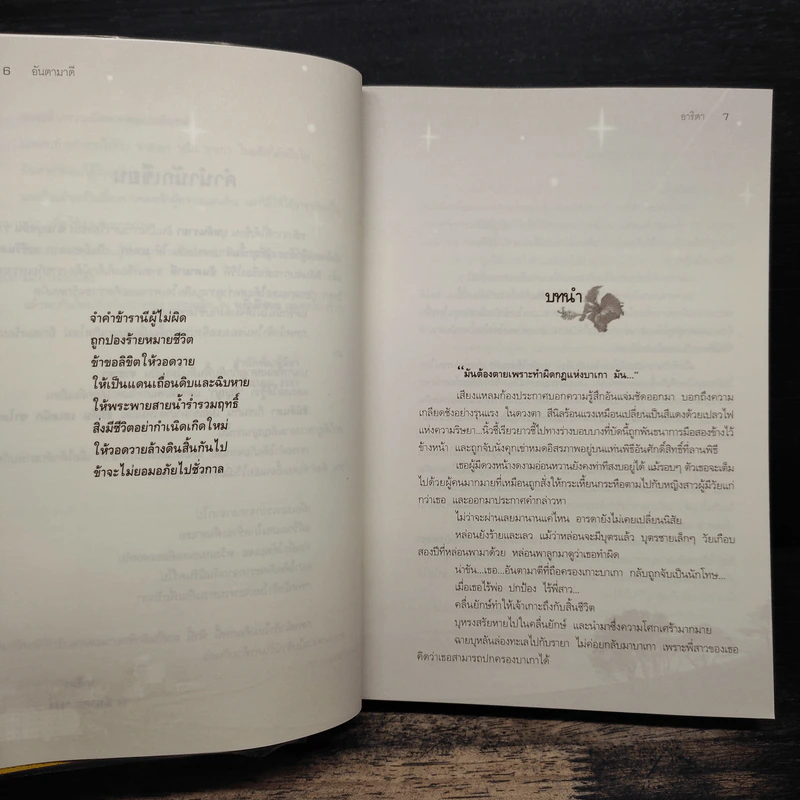 6 อันตามาตี
จำคำข้ารานีผู้ไม่ผิด
ถูกปองร้ายหมายชีวิต
ข้าขอลิขิตให้วอดวาย
ให้เป็นแดนเถื่อนดิบและฉิบหาย
ให้พระพายสายน้ำร่ำรวมฤทธิ์
สิ่งมีชีวิตอย่ากำเนิดเกิดใหม่
ให้วอดวายล้างดินสิ้นกันไป
ข้าจะไม่ยอมอภัยไปชั่วกาล
อาริตา 7
บทนำ
“มันต้องตายเพราะทำผิดกฎแห่งบาเกา มัน...”
เสียงแหลมก้องประกาศบอกความรู้สึกอันแจ่มชัดออกมา บอกถึงความ
เกลียดชังอย่างรุนแรง ในดวงตา สีนิลร้อนแรงเหมือนเปลี่ยนเป็นสีแดงด้วยเปลวไฟ
แห่งความริษยา...นิ้วชี้เรียวยาวชี้ไปทางร่างบอบบางที่บัดนี้ถูกพันธนาการมือสองข้างไว้
ข้างหน้า และถูกจับนั่งคุกเข่าหมดอิสรภาพอยู่บนแท่นพิธีอันศักดิ์สิทธิ์ที่ลานพิธี
เธอผู้มีดวงหน้างดงามอ่อนหวานยังคงท่าทีสงบอยู่ได้ แม้รอบๆ ตัวเธอจะเต็ม
ไปด้วยผู้คนมากมายที่เหมือนถูกสั่งให้กระเหี้ยนกระหือตามไปกับหญิงสาวผู้มีวัยแก่
กว่าเธอ และออกมาประกาศคำกล่าวหา
ไม่ว่าจะผ่านเลยมานานแค่ไหน อารตายังไม่เคยเปลี่ยนนิสัย
หล่อนยังร้ายและเลว แม้ว่าหล่อนจะมีบุตรแล้ว บุตรชายเล็กๆ วัยเกือบ
สองปีที่หล่อนพามาด้วย หล่อนพาลูกมาดูว่าเธอทำผิด
น่าขัน...เธอ...อันตามาตีที่ถือครองเกาะบาเกา กลับถูกจับเป็นนักโทษ...
เมื่อเธอไร้พ่อ ปกป้อง ไร้พี่สาว...
คลื่นยักษ์ทำให้เจ้าเกาะถึงกับสิ้นชีวิต
บุหรงสรัยหายไปในคลื่นยักษ์ และนำมาซึ่งความโศกเศร้ามากมาย
ฉายบุหลันล่องทะเลไปกับรายา ไม่ค่อยกลับมาบาเกา เพราะพี่สาวของเธอ
คิดว่าเธอสามารถปกครองบาเกาได้